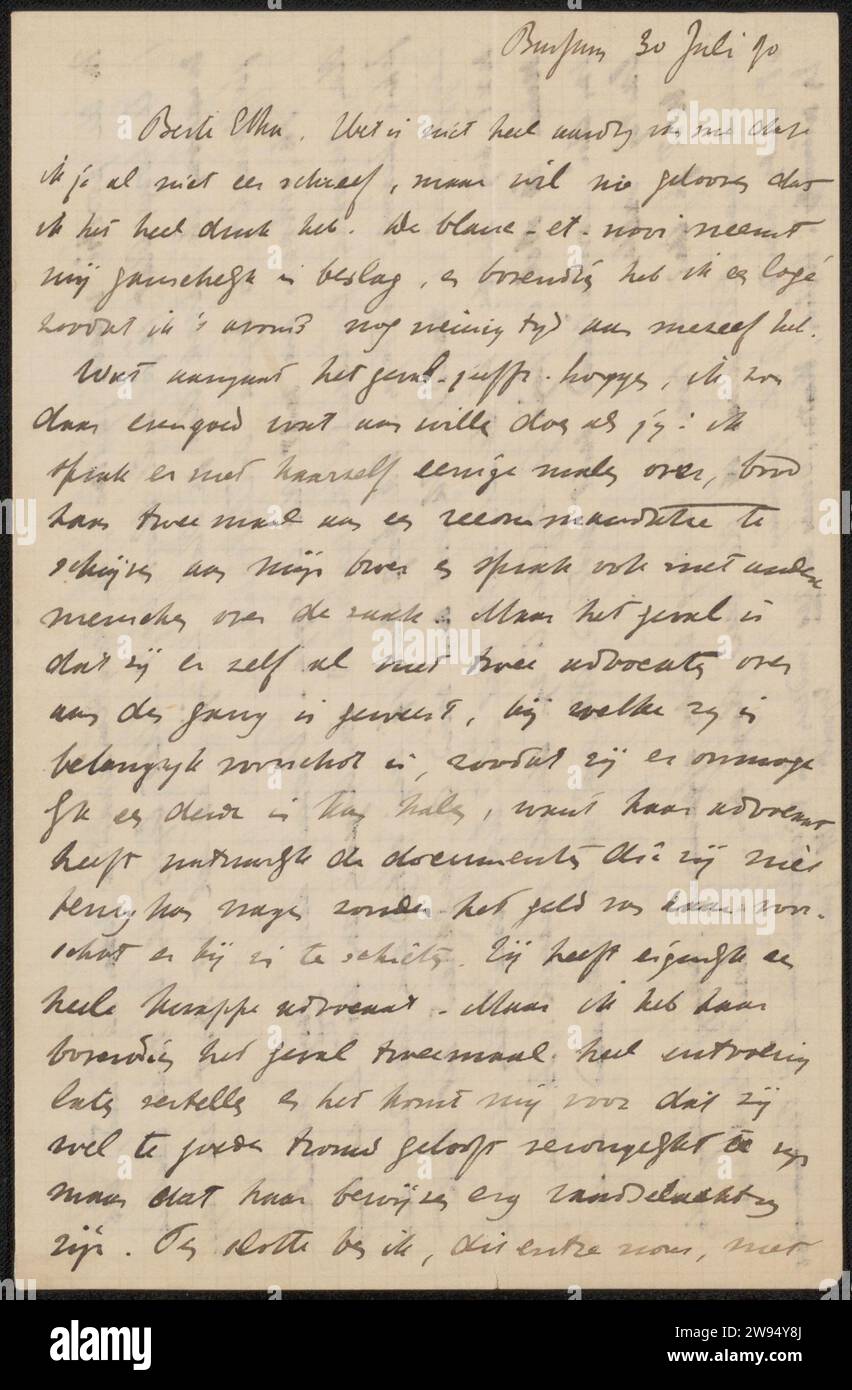 Bussum 30 Juli 90
Beste Etha. Het is niet heel aardig van me dat
ik je al niet eer schreef, maar wil me gelooven dat
ik het heel druk heb. De blanc-et-noir neemt
mij ganschelijk in beslag, en bovendien heb ik een logé
zoodat ik 's avonds nog weinig tijd aan mezelf heb.
Wat aangaat het geval-juffr. , ik zou
daar evengoed wat aan willen doen als jij: ik
sprak er met haarzelf eenige malen over, bood
haar tweemaal aan een recommandatie te
schrijven aan mijn broer en sprak ook met andere
menschen over de zaak. Maar het geval is
dat zij er zelf al met twee advocaten over
aan den gang is geweest, bij welke zij in
belangrijk voorschot is, zoodat zij er onmoge
lijk een derde in kan halen, want haar advocaat
heeft natuurlijk de documenten die zij niet
terug kan vragen zonder het geld van haar voor-
schot er bij in te schieten. Zij heeft eigenlijk een
heele knappe advocaat. Maar ik heb haar
bovendien het geval tweemaal heel uitvoerig
laten vertellen en het komt mij voor dat zij
wel te goeder trouw gelooft verongelijkt te zijn
maar dat haar bewijzen erg twijfelachtig
zijn. Ten slotte ben ik, dit entre nous, met
alamy
Image ID: 2W94Y8J
www.alamy.com